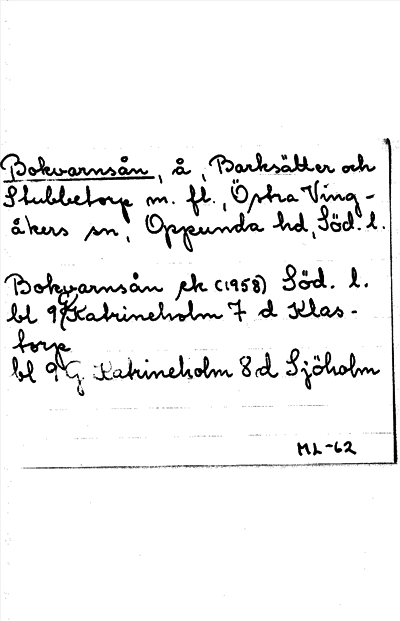 Bokvarnsån, å, Barksätter och
Stubbetorp m. fl., Östra Ving-
åkers sn, Oppunda hd, Söd. l.
Bokvarnsån ek (1958) Söd. l.
bl 9G Katrineholm 7 d Klas-
torp
bl 9G Katrineholm 8d Sjöholm
ML-62